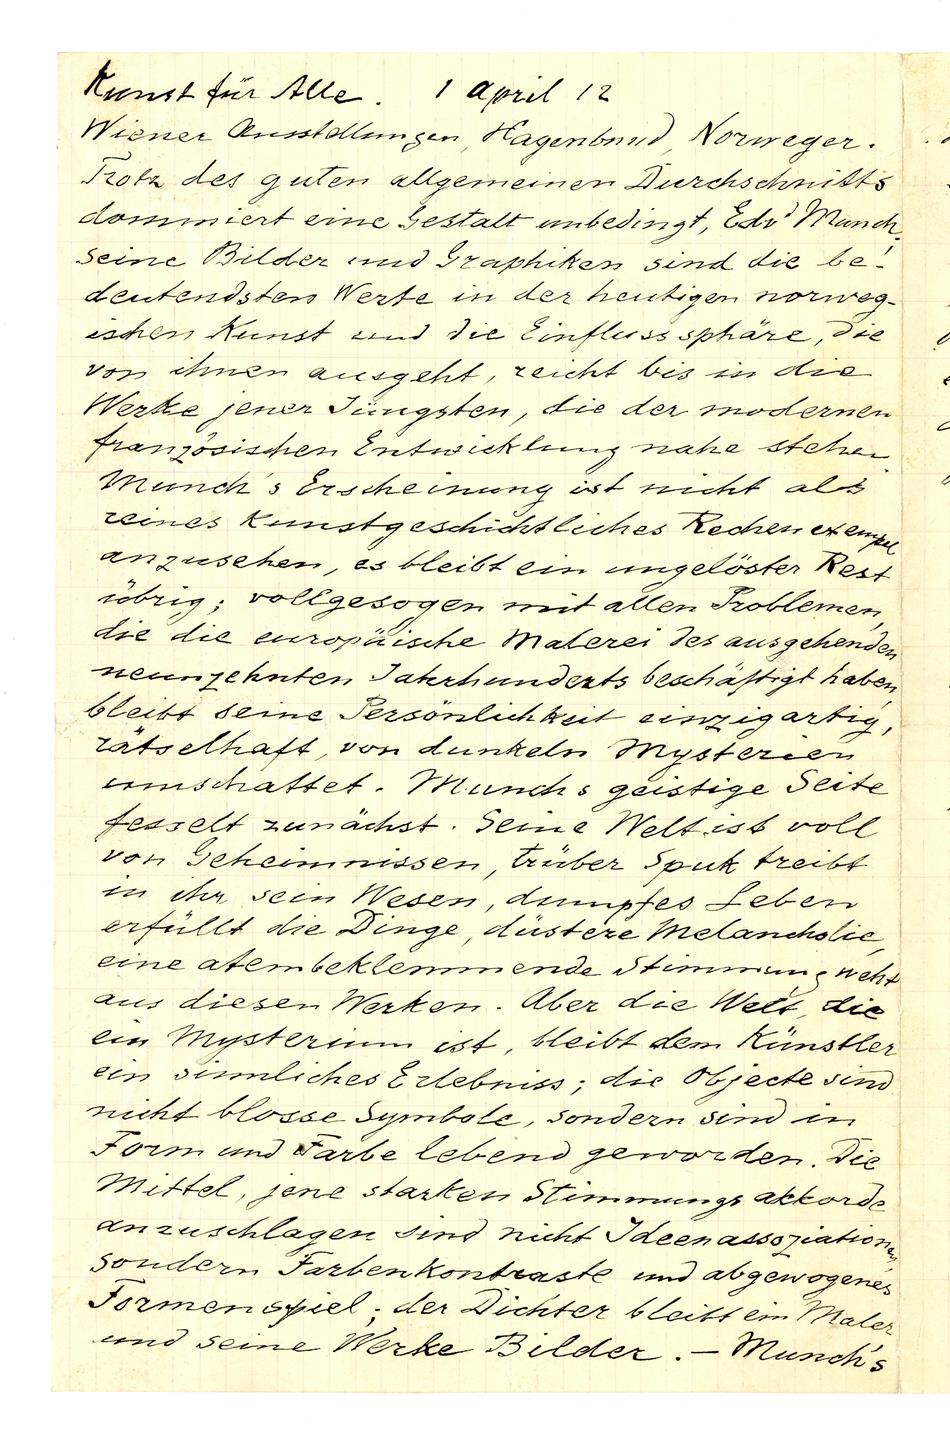 Kunst für Alle. 1 April 12
Wiener Ausstellungen, Hagenbund, Norweger.
Trotz des guten allgemeinen Durchschnitts
dominiert eine Gestalt unbedingt, Edvd Munch.
seine Bilder und Graphiken sind die be-
deutendsten Werte in der heutigen norweg-
ischen Kunst und die Einflusssphäre, die
von ihnen ausgeht, reicht bis in die
Werke jener Jüngsten, die der modernen
französischen Entwicklung nahe stehen
Munch's Erscheinung ist nicht als
reines kunstgeschichtliches Rechenexempel
anzusehen, es bleibt ein ungelöster Rest
übrig; vollgesogen mit allen Problemen,
die die europäische Malerei des ausgehenden
neunzehnten Jahrhunderts beschäftigt haben,
bleibt seine Persönlichkeit einzigartig,
rätselhaft, von dunkeln Mysterien
umschattet. Munchs geistige Seite
fesselt zunächst. Seine Welt ist voll
von Geheimnissen, trüber Spuk treibt
in ihr sein Wesen, dumpfes Leben
erfüllt die Dinge, düstere Melancholie,
eine atembeklemmende Stimmung weht
aus diesen Werken. Aber die Welt, die
ein Mysterium ist, bleibt dem Künstler
ein sinnliches Erlebniss; die Objecte sind
nicht blosse Symbole, sondern sind in
Form und Farbe lebend geworden. Die
Mittel, jene starken Stimmungsakkorde
anzuschlagen sind nicht Ideenassoziationen,
sondern Farbenkontraste und abgewogenes
Formenspiel; der Dichter bleibt ein Maler
und seine Werke Bilder. – Munch's